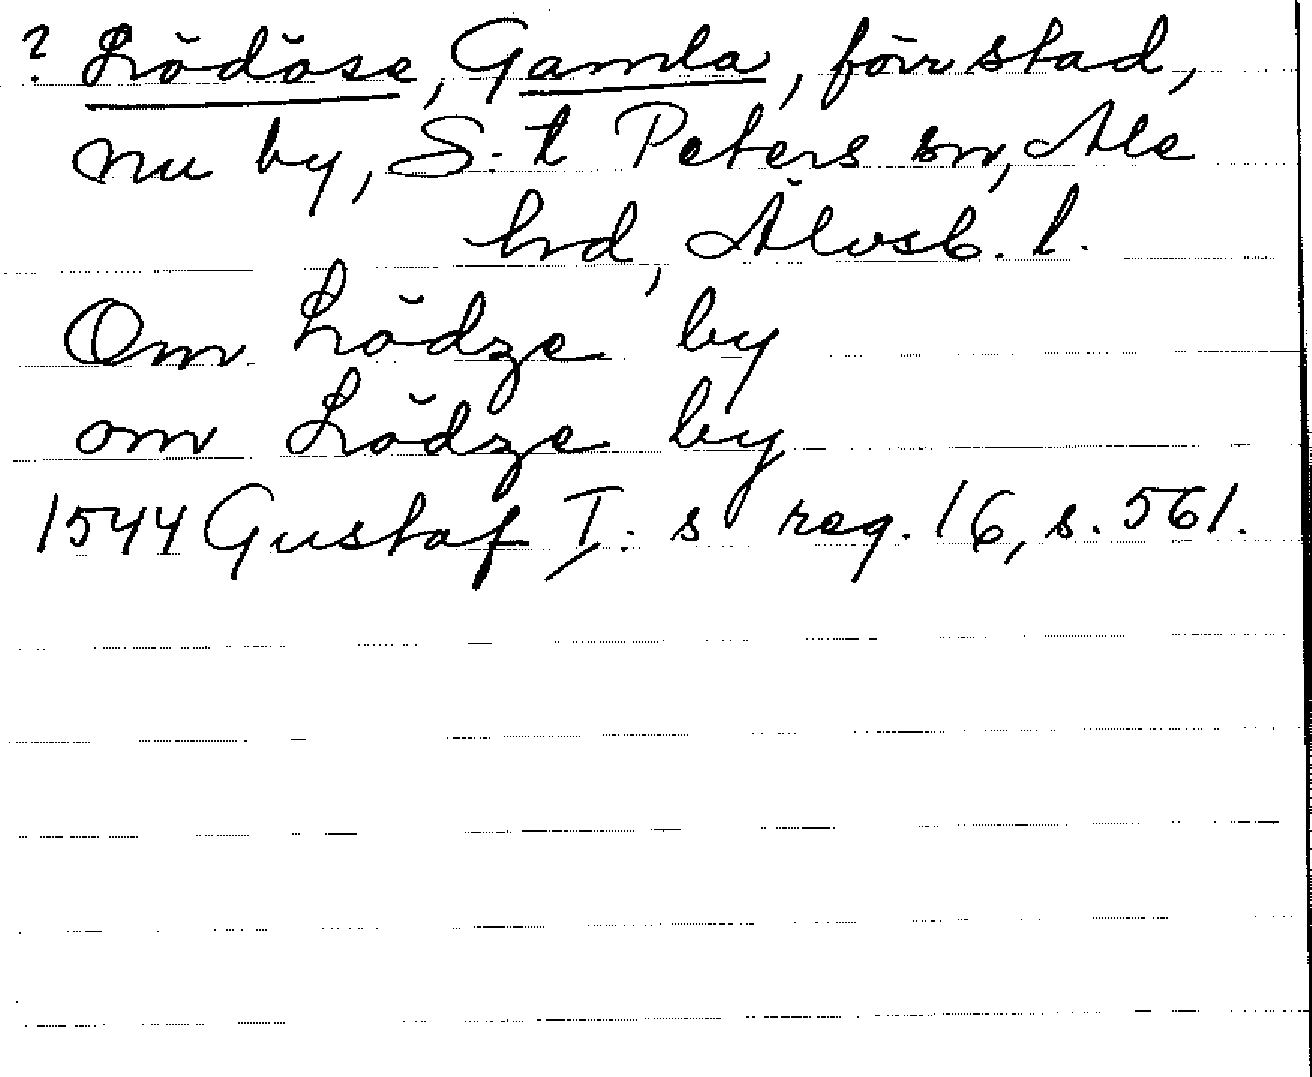 ? Lödöse, Gamla, förr stad,
nu by, S:t Peters sn, Ale
hrd, Älvsb. l.
Om Lödze by
om Lödze by
1544 Gustaf I:s reg. 16, s. 561.